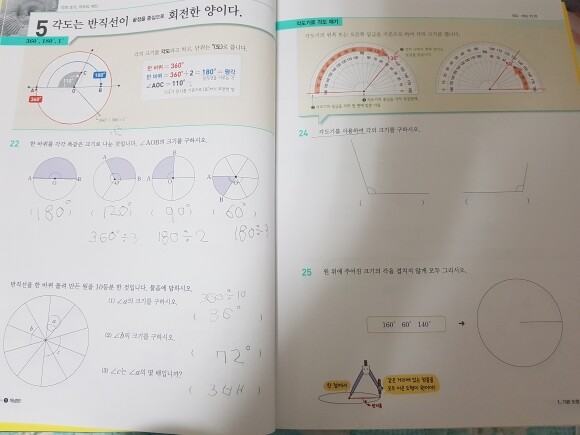 5 각도는 반직선이 끝점을 중심으로 회전한 양이다.
360°, 180°, 1°
각의 크기를 각도라고 하고, 단위는 °(도)로 씁니다.
한 바퀴 = 360°
한 바퀴 = 360° ÷ 2 = 180° = 평각
∠AOC = 110°
110°
180°
360°
A
O
B
C
22 한 바퀴를 각각 똑같은 크기로 나눈 것입니다. ∠AOB의 크기를 구하시오.
A O B
A O B
A O B
A O B
(180°) (120°) (90°) (60°)
360°÷3 180÷2 180÷3
반직선을 한 바퀴 돌려 만든 원을 10등분 한 것입니다. 물음에 답하시오.
360°÷10
(1) ∠a의 크기를 구하시오.
(36°)
(2) ∠b의 크기를 구하시오.
(72°)
(3) ∠c는 ∠a의 몇 배입니까?
(3배)
a
b
c
각도기로 각도 재기
24 각도기를 사용하여 각의 크기를 구하시오.
( ) ( )
25 원 위에 주어진 크기의 각을 겹치지 않게 모두 그리시오.
160° 60° 140°
한 점에서
같은 거리에 있는 점들을
모두 이은 도형이 원이야!
반지름